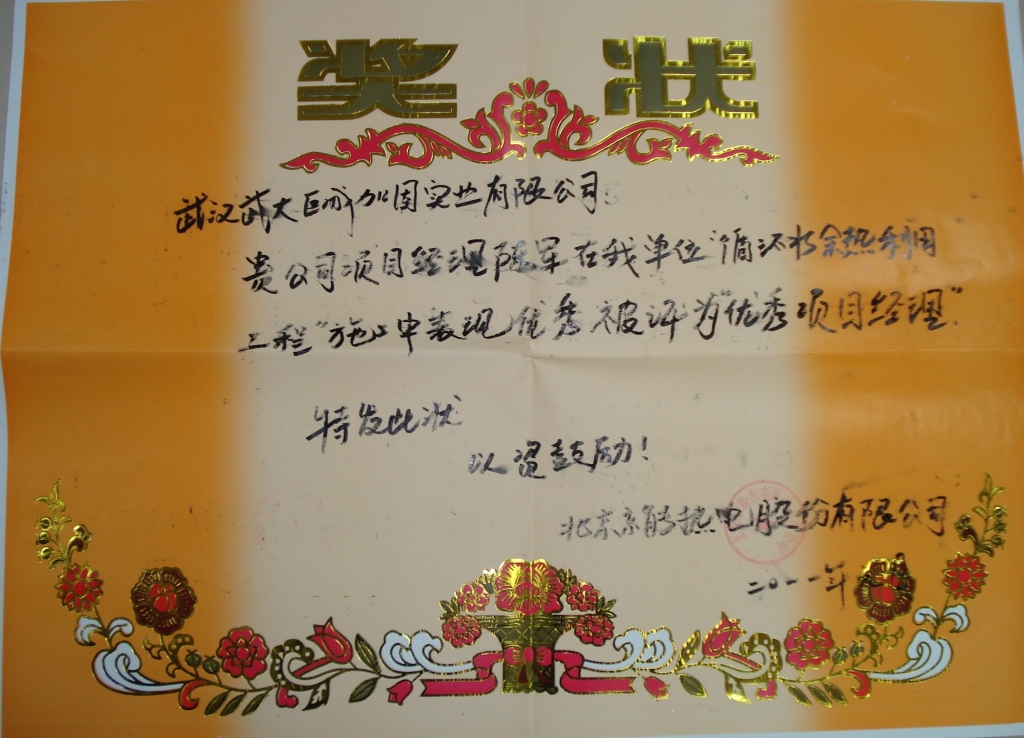 奖状
武汉武大巨成加固实业有限公司:
贵公司项目经理陈军在我单位"循环水余热利用
工程"施工中表现优秀被评为"优秀项目经理".
特发此状
以资鼓励!
北京京能热电股份有限公司
二〇一一年